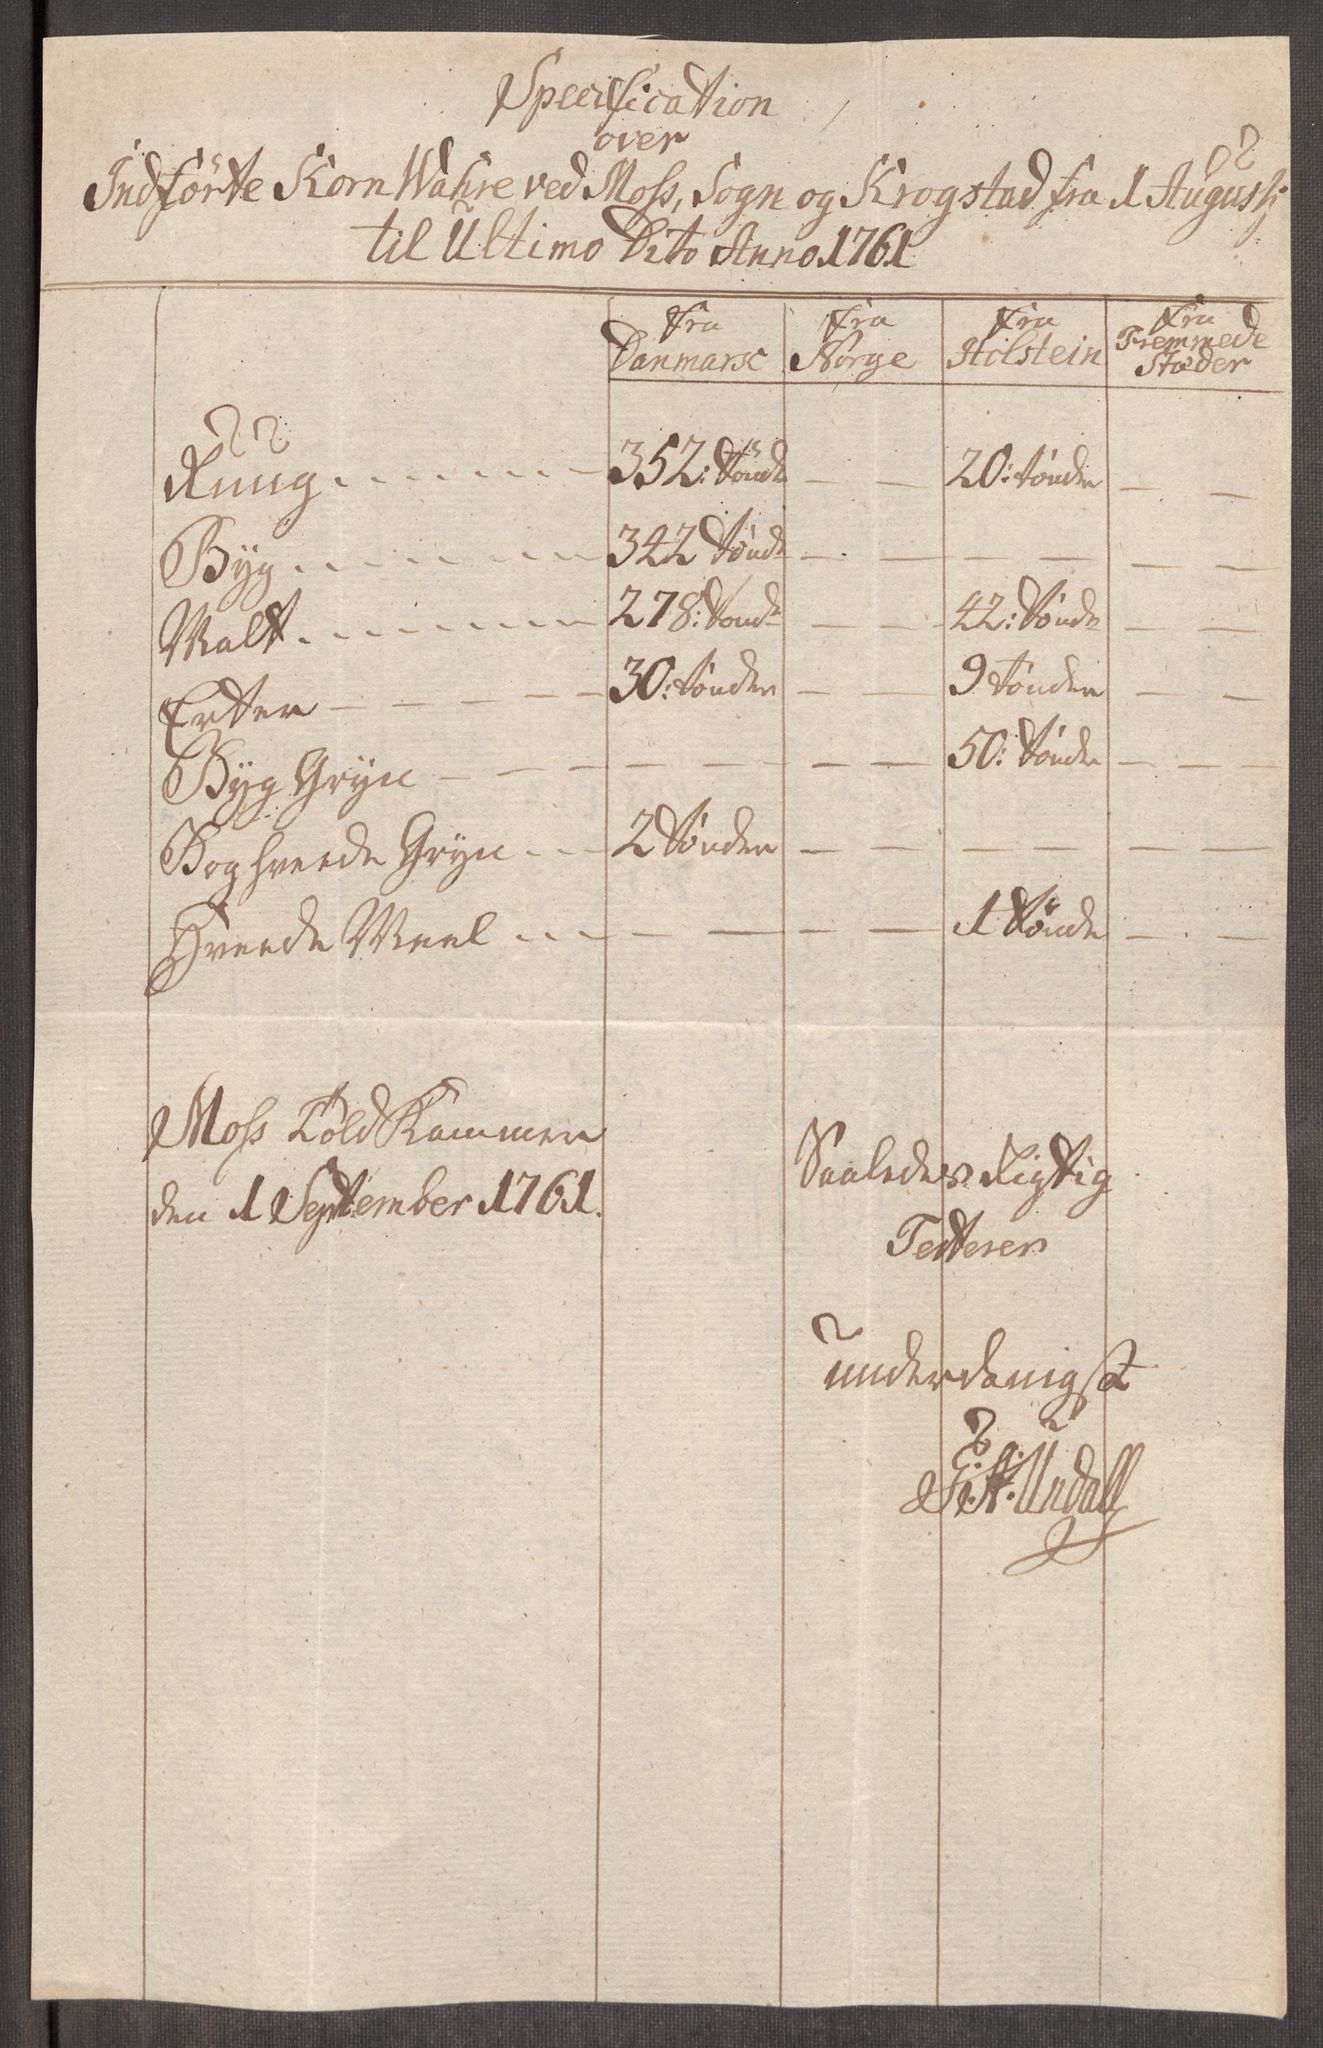 Specification
over
Indförte Korn Wahre ved Moss, Sogn og Krogstad fra 1 Augustj
til Ultimo Dito Anno 1761
fra Danmarc fra Norge fra Holstein fra Fremmede Stæder
Ruug 352: tönde — — 20: tönder — —
Byg 342 tönd — — — — — —
Malt 278: tond — — 42: tönde — —
Erter 30: tönder — — 9 tönder — —
Byg Gryn — — — — 50: tönder — — —
Boghvede Gryn 2 tönder — — — — — —
Hvede Meel — — — — 1 tönde — —
Moss Told Kammer
den 1 September 1761.
Saaledes Rigtig
Testerer
underdanigst